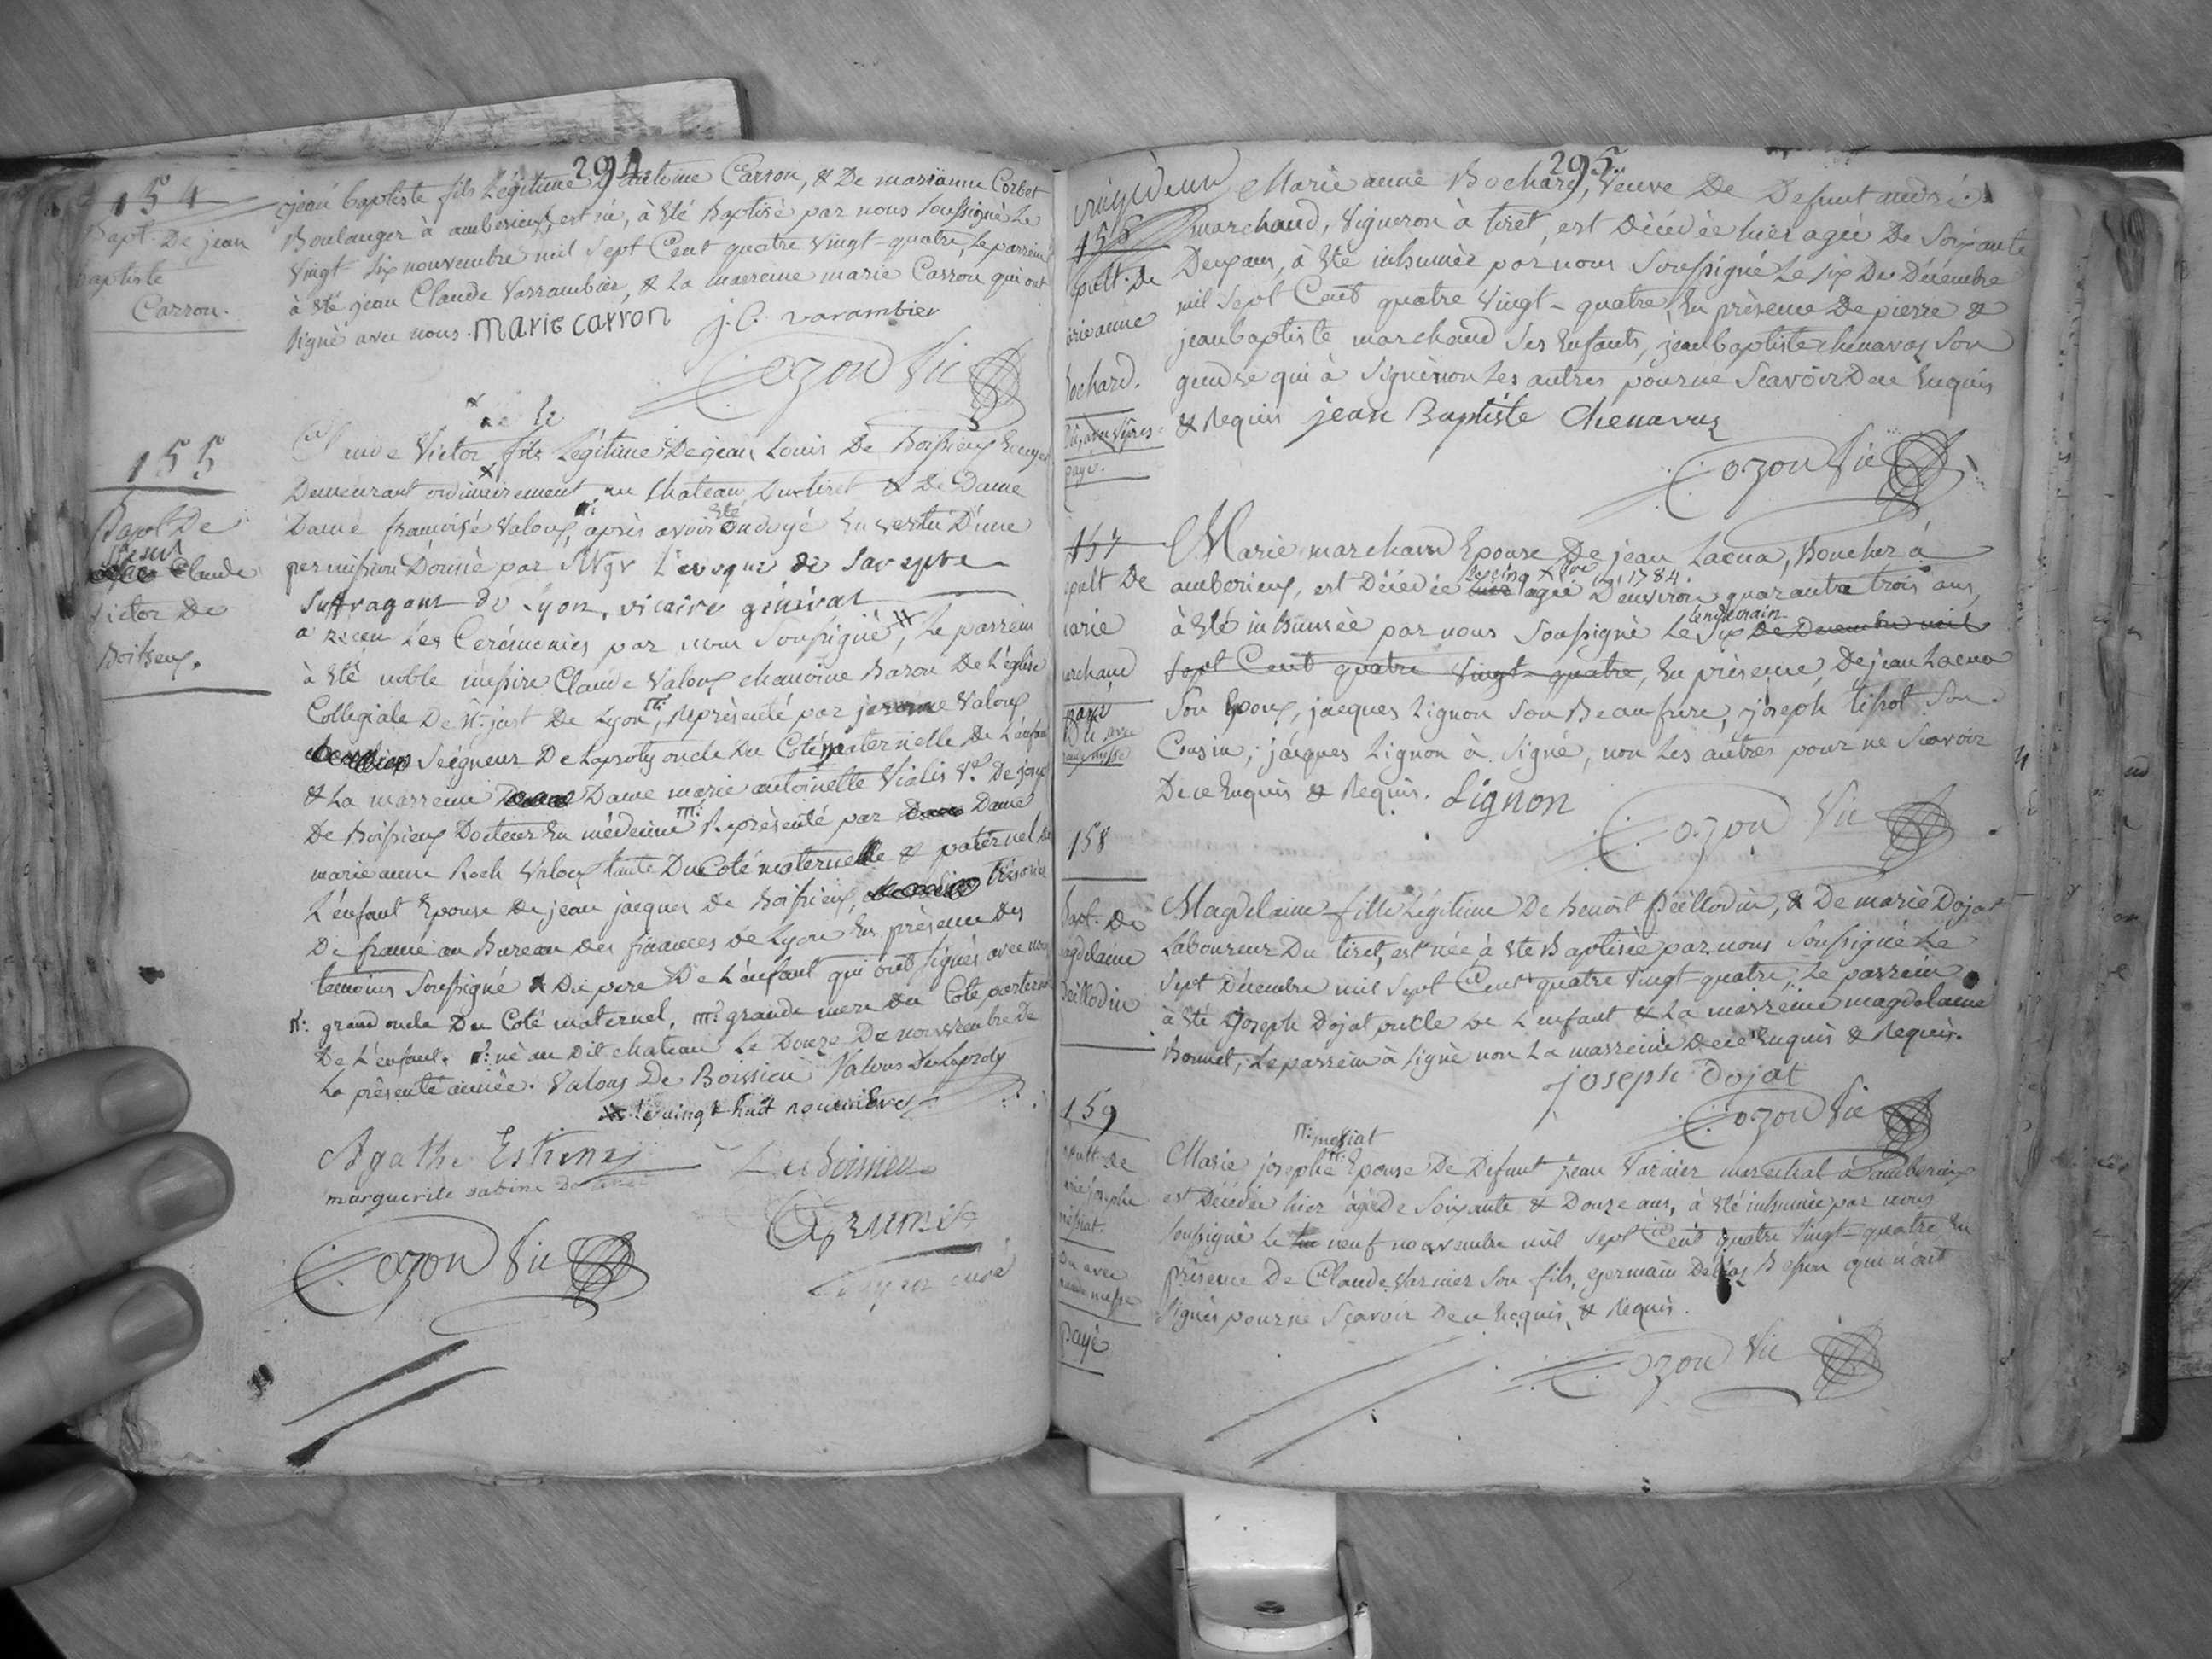 294
154
Bapt. De jean
baptiste
Carron.
jean baptiste fils Légitime D'antoine Carron, & De marianne Corbet
Boulanger à amberieux, est né, à été Baptisé par nous soussigné Le
vingt six nouvembre mil sept Cent quatre vingt-quatre, Le parrein
à été jean Claude Varrambier, & La marreine marie Carron qui ont
signé avec nous. marie carron j. C. varambier
Cozon Vic
155
Bapt De
Claude
victor De
Boissieux.
Claude Victor fils Légitime De jean Louis De Boissieux Ecuyer
Demeurant ordinairement au Chateau Du tiret & De Dame
Dame françoise Valoux, après avoir été ondoyé En vertu D'une
permission Donnée par Mgr L'eveque de Sarepte
Suffragant de Lyon, vicaire général
a reçeu Les Cerémonies par nous Soussigné, Le parrein
à été noble messire Claude Valoux chanoine Baron De L'église
Collegiale De St. just De Lyon, Représenté par jerome Valoux
Seigneur De Laproty oncle Du Coté maternelle De L'enfant
& La marreine Dame marie antoinette Vialis Ve. De
De Boissieux Docteur En médecine Représenté par Dame
marie anne Roch Valoux tante Du Coté maternelle & paternel De
L'enfant Epouse De jean jacques De Boissieux, trésorier
De france au Bureau des finances de Lyon En présence Des
temoins Soussigné & Du pere De L'enfant qui ont signés avec nous
grand oncle Du Coté maternel. grande mere du Coté paternel
De L'enfant. né au Dit chateau Le Douze De nouvembre De
La présente année. Valous De Boissieu Valous De Laproty
le vingt huit nouembre
Agathe Estienne De Boissieu
marguerite sabine
Cozon Vic
curé
295
156
sepult. De
marie anne
Bochard.
payé.
Marie anne Bochard, Veuve De Defunt andré
marchand, Vigneron à tiret, est Décédée hier agée De Soixante
Deux ans, à été inhumée par nous Soussigné Le six De Décembre
mil sept Cent quatre Vingt-quatre, En présence De pierre &
jean baptiste marchand Ses Enfants, jean baptiste chenavaz Son
gendre qui à Signé non Les autres pour ne Scavoir De ce Enquis
& Requis jean Baptiste Chenavaz
Cozon Vic
157
sepult De
marie
marchand
payé
Marie marchand Epouse De jean Lacua, Boucher à
Le cinq Xbre 1784.
amberieux, est Décédée hier agée D'environ quarante trois ans,
lendemain
à été inhumée par nous Soussigné Le Six De Decembre mil
Sept Cent quatre Vingt-quatre, En présence, De jean Lacua
Son Epoux, jacques Lignon Son Beau frere, joseph tissot Son
Cousin, jacques Lignon à Signé, non Les autres pour ne Scavoir
De ce Enquis & Requis. Lignon
Cozon Vic
158
Bapt. De
magdelaine
Magdelaine fille Légitime De Benoit & De marie Dojat
Laboureur Du tiret, est née à été Baptisée par nous Soussigné Le
Sept Décembre mil Sept Cent quatre Vingt-quatre, Le parrein
à été joseph Dojat, oncle De L'enfant & La marreine magdelaine
Bonnet, Le parrein à Signé non La marreine De ce Enquis & Requis.
joseph Dojat
Cozon Vic
159
sepult De
marie josephe
messiat.
payé
messiat
Marie josephe Epouse De Defunt jean Varnier marechal à amberieux
est Décédée hier agée De Soixante & Douze ans, à été inhumée par nous
Soussigné Le neuf nouvembre mil Sept Cent quatre Vingt-quatre, En
présence De Claude Varnier Son fils, germain Besson qui n'ont
Signés pour ne Sçavoir De ce Enquis & Requis.
Cozon Vic